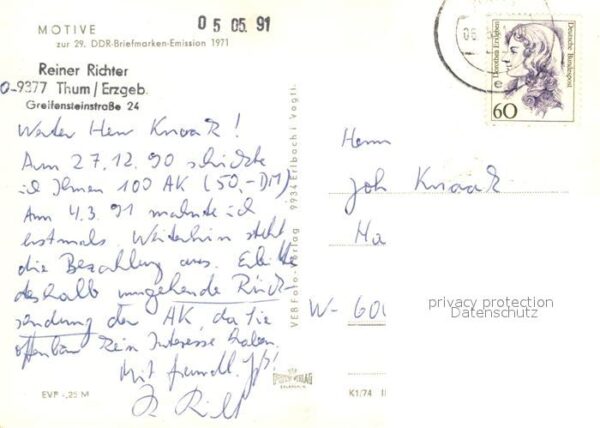 MOTIVE
zur 29. DDR-Briefmarken-Emission 1971
05 05. 91
Reiner Richter
O-9377 Thum/Erzgeb.
Greifensteinstraße 24
Werter Herr Knaak!
Am 27.12.90 schickte
ich Ihnen 100 AK (50,-DM)
Am 4.3.91 mahnte ich
erstmals. Weiterhin steht
die Bezahlung aus. Erbitte
deshalb umgehende Rück-
sendung der AK, da Sie
offenbar kein Interesse haben.
Mit freundl. Gr!
EVP -,25 M
VEB Foto-Verlag 9934 Erlbach i Vogtl.
K1/74
Dorothea Erxleben
Deutsche Bundespost
60
Herrn
Joh Knaak
Ha
W- 600
privacy protection
Datenschutz